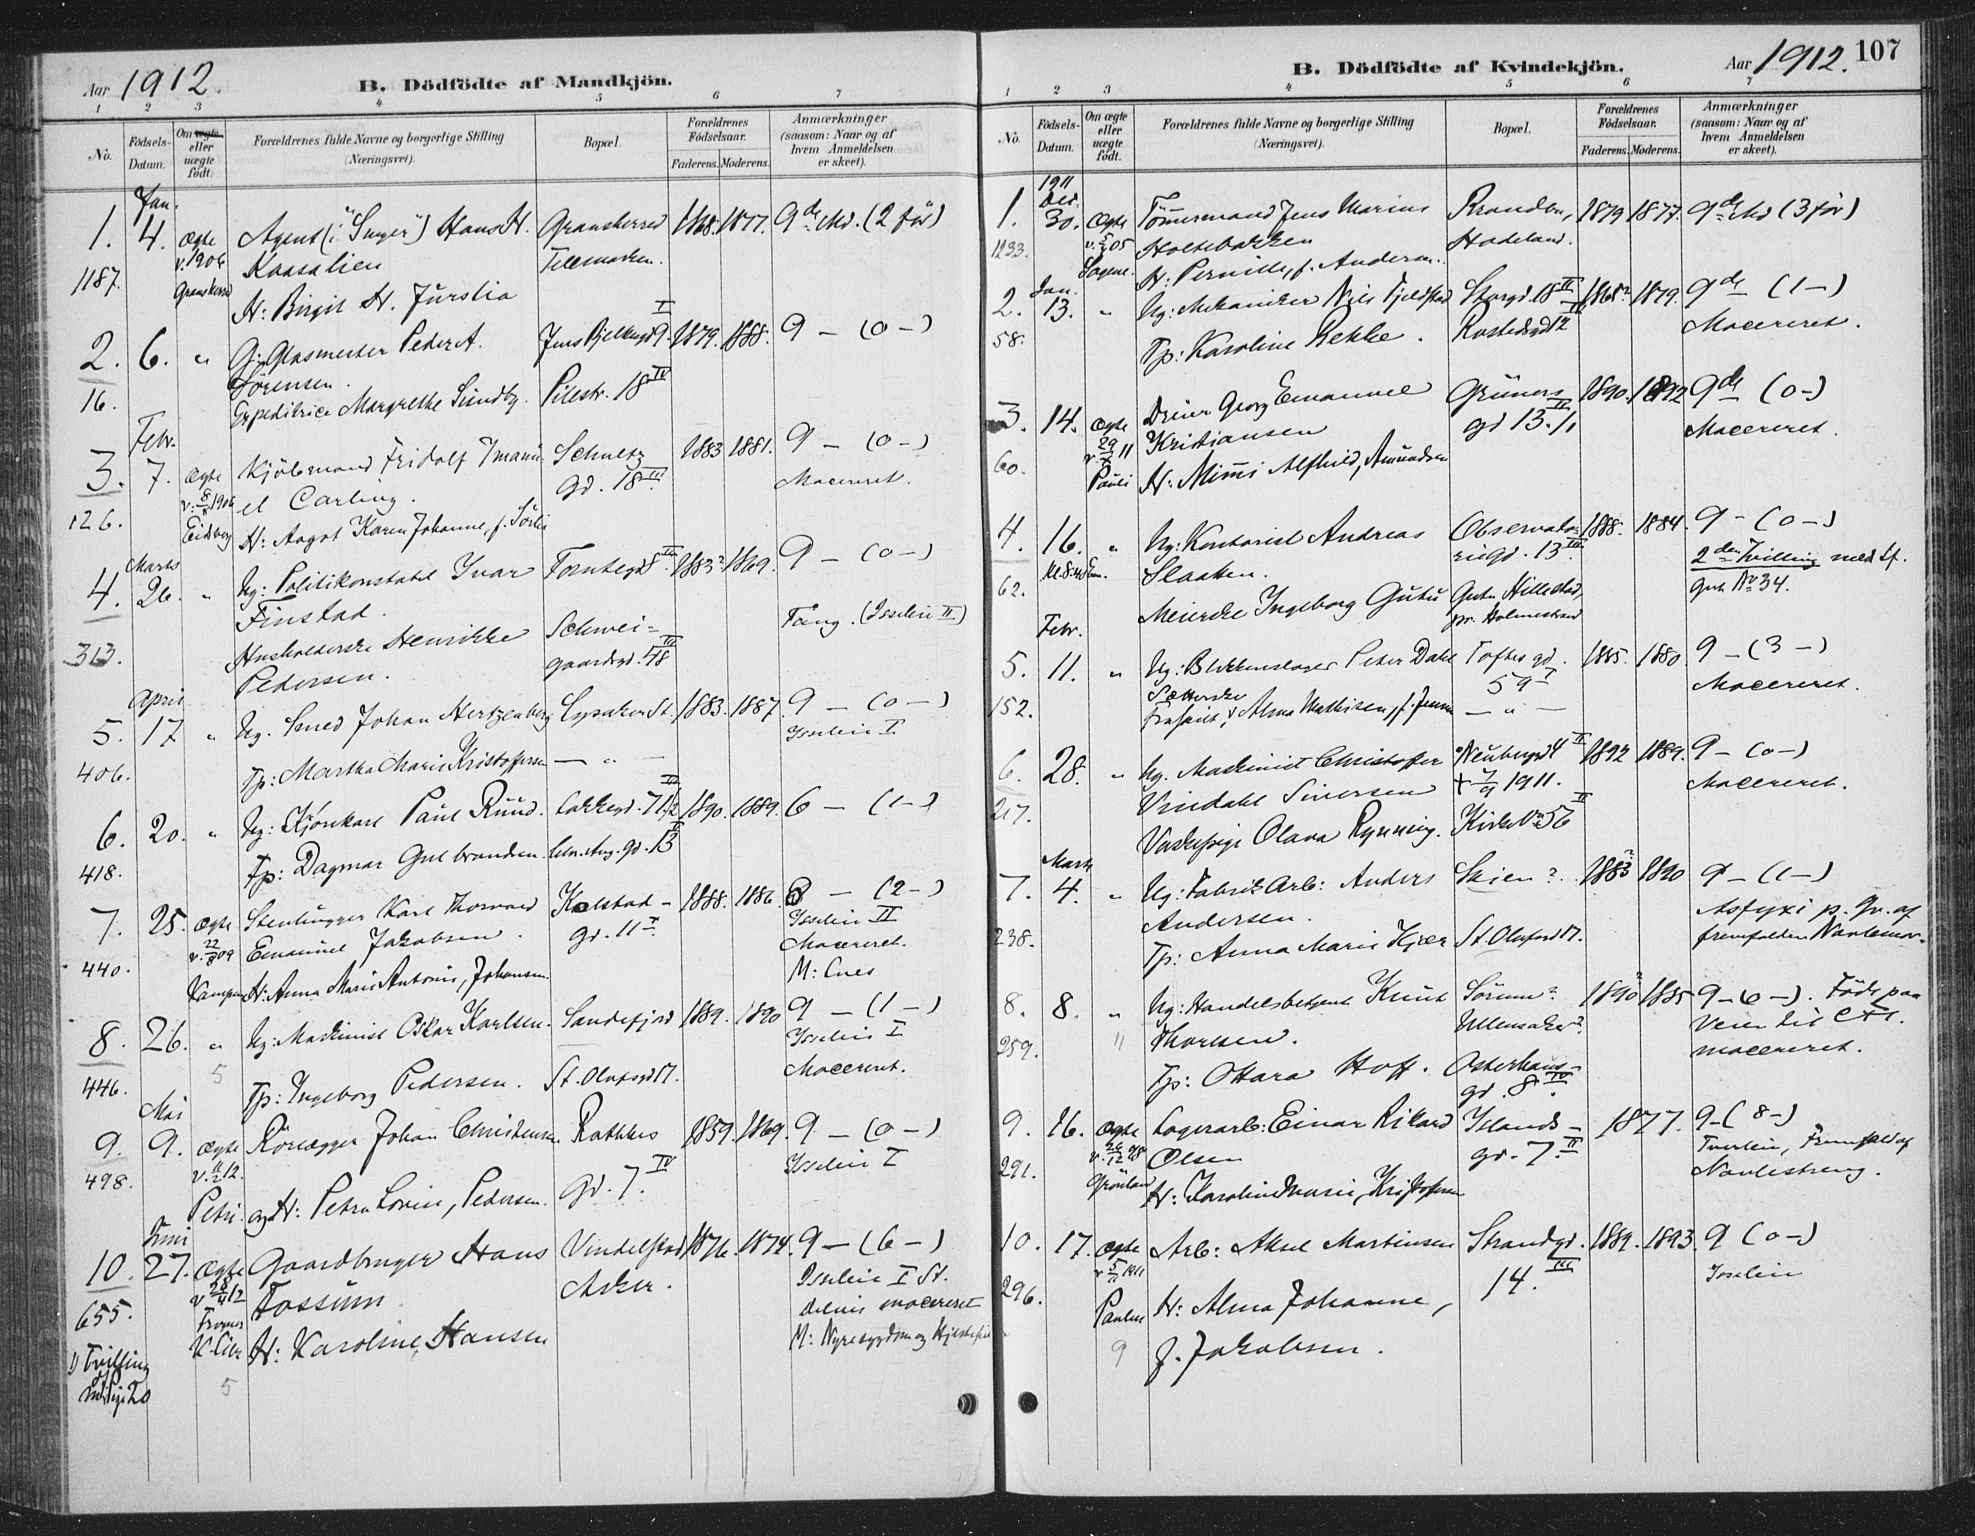 Aar 1912.
B. Dödfödte af Mandkjön.
1 2 3 4 5 6 7
No.
Födsels-Datum.
Om ægte eller uægte födt.
Forældrenes fulde Navne og borgerlige Stilling (Næringsvei).
Bopæl.
Forældrenes Födselsaar.
Faderens. Moderens.
Anmærkninger (saasom: Naar og af hvem Anmeldelsen er skeet).
Jan.
1. 4. Ægte Agent (i "Singer") Hans H. Gransherred 1868. 1877. 9de Md. (2 för)
v. 1906 Kaasalien Telemarken.
1187. Gransherred
H: Birgit H.
2. 6. " G: Glasmester Peder A. Jens Bjelkesgd 9 I 1879. 1888. 9 — (0 —)
Jörensen.
16. Expeditrice Margrethe Sundby. Pilestr. 18 IV
Febr.
3. 7. Ægte Kjöbmand Fridolf Imanu- Schultz 1883 1881. 9 — (0 —)
v: 1906 el Carling. gd. 18 III Macereret.
126. Eidsberg H: Aagot Karen Johanne, f.
Marts
4. 26. " Ug: Politikonstabel Ivar Tomtegd 8 III 1883? 1869. 9 — (0 —)
Finstad.
Husholderske Henrikke Schwei- Tang. (Issein II)
313. Pedersen. gaardsgd. 48 IV
April
5. 17 " Ug. Smed Johan Hertzenberg Lysaker St. 1883. 1887. 9 — (0 —)
Issein I
406. Tp: Martha Marie Kristoffersen — " —
6. 20. " Ug: Kjörekarl Paul Ruud. 71 1890. 1889. 6 — (1 —)
418. Tp: Dagmar Gulbrandsen. Chr. Aug. gd. 13
7. 25. Ægte Stenhugger Karl Thorvald Kolstad- 1888. 1886. 8 — (2 —)
v. 22/8 09 Emanuel Jakobsen. gd. 11 Issein II
Macereret.
440. Kampen H: Anna Marie Antonie, Johansen M: Lues
8. 26. " Ug: Maskinist Oskar Karlsen. Sandefjord 1889. 1890 9 — (1 —)
Issein I
5
446. Tp: Ingeborg Pedersen. St. Olafsgd 17. Macereret.
Mai
9. 9. Ægte Rörlægger Johan Christensen Rathkes 1859. 1869. 9 — (0 —)
v. 11/2 12. gd. 7. IV Issein I
498. Petri. og H: Petra Lovise, Pedersen.
Juni
10. 27. Ægte Gaardbruger Hans Vindelstad 1876. 1874. 9 — (6 —)
v 28/4 12 Fossum Asker. Issein I St.
655. Frogner delvis macereret
H: Karoline, Hansen M: Nyresygdom og Hjertefeil
1) Tvilling
med Pige 20
5
B. Dödfödte af Kvindekjön.
Aar 1912. 107
1 2 3 4 5 6 7
No.
Födsels-Datum.
Om ægte eller uægte födt.
Forældrenes fulde Navne og borgerlige Stilling (Næringsvei).
Bopæl.
Forældrenes Födselsaar.
Faderens. Moderens.
Anmærkninger (saasom: Naar og af hvem Anmeldelsen er skeet).
1911
Dec.
1. 30. Ægte Tömmermand Jens Marius Brandbu, 1879 1877. 9de Md (3 för)
v. 05 Holtebakken Hadeland.
1233. Sagene. H: Pernille, f. Andersen.
Jan.
2. 13. " Ug: Mekaniker Nils Fjeldstad Storgd. 18 II 1865? 1879. 9de (1 —)
Macereret.
58. Tp: Karoline Bekke. Rostedsgd 12
3. 14. Ægte Dreier Georg Emanuel Grüners 1890. 1892 9de (0 —)
v. 29/ 11 Kristiansen gd 13. II/1 Macereret.
60. Pauli H: Mimmi Alfhild, Amundsen
4. 16. " Ug: Kontorist Andreas Observato- 1888. 1884. 9 — (0 —)
Kl. 8. Em. Slaaken. riegd. 13 III 2den Tvilling med lf.
62. Meierske Ingeborg Gutu Gutu Hillestad, gut No 34.
pr. Holmestrand
Febr.
5. 11. " Ug: Blikkenslager Peter Dahl Toftes gd. 1885. 1880 9 — (3 —)
Sætterske 59 I Macereret.
152. Frasepr. Alma Mathisen, f. Jensen — " —
6. 28. " Ug. Maskinist Christoffer Neubergd 4 II 1892 1889. 9 — (0 —)
Vindahl Siversen + 7/9 1911. Macereret.
217. Vaskepige Olava Rynning. Kirkevn 56 II
Marts
7. 4. " Ug: Fabrikarb: Anders Skien? 1883? 1890 9 — (1 —)
Andersen. Asfyxi p. Gr. af
238. Tp: Anna Marie Kjær St. Olafsgd 17. fremfalden Navlesnor.
8. 8. " Ug: Handelsbetjent Knut Sörum? 1890? 1885 9 — (0 —). Födt paa
Thoresen. Ullensaker? Veien til
259. 11 macereret.
Tp: Ottara Hoff. Osterhaus-
gd. 8 IV
9. 16. Ægte Lagerarb: Einar Rikard Islands- 1877. 9 — (8 —)
v. 26/12 98 Olsen gd. 7. II Tverleie, Fremfald af
291. Grönland H: Karoline Marie, Kristoffersen Navlestreng.
10. 17. Ægte Arb: Aksel Martinsen Strandgd. 1889. 1893. 9 (0 —)
v 5/11 1911 14. III Issein
296. Paulus H: Alma Johanne,
9 f. Jakobsen.